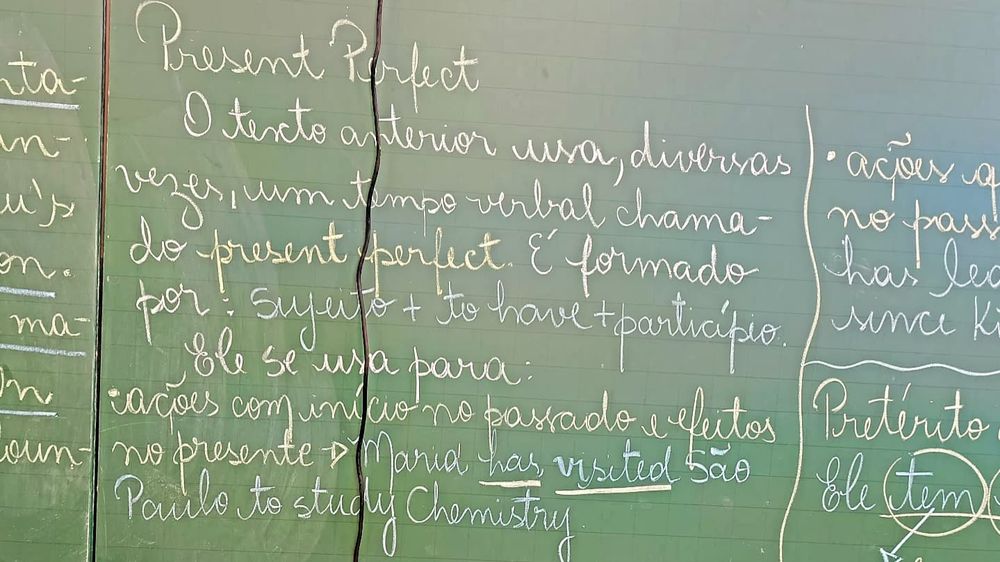 Present Perfect
O texto anterior usa, diversas
vezes, um tempo verbal chama-
do present perfect. É formado
por: Sujeito + to have + particípio.
Ele se usa para:
•ações com início no passado e efeitos
no presente → Maria has visited São
Paulo to study Chemistry
• ações q
no pass
has
since Ki
Pretérito
Ele tem
ta-
un-
u's
on.
ma-
On
oun-